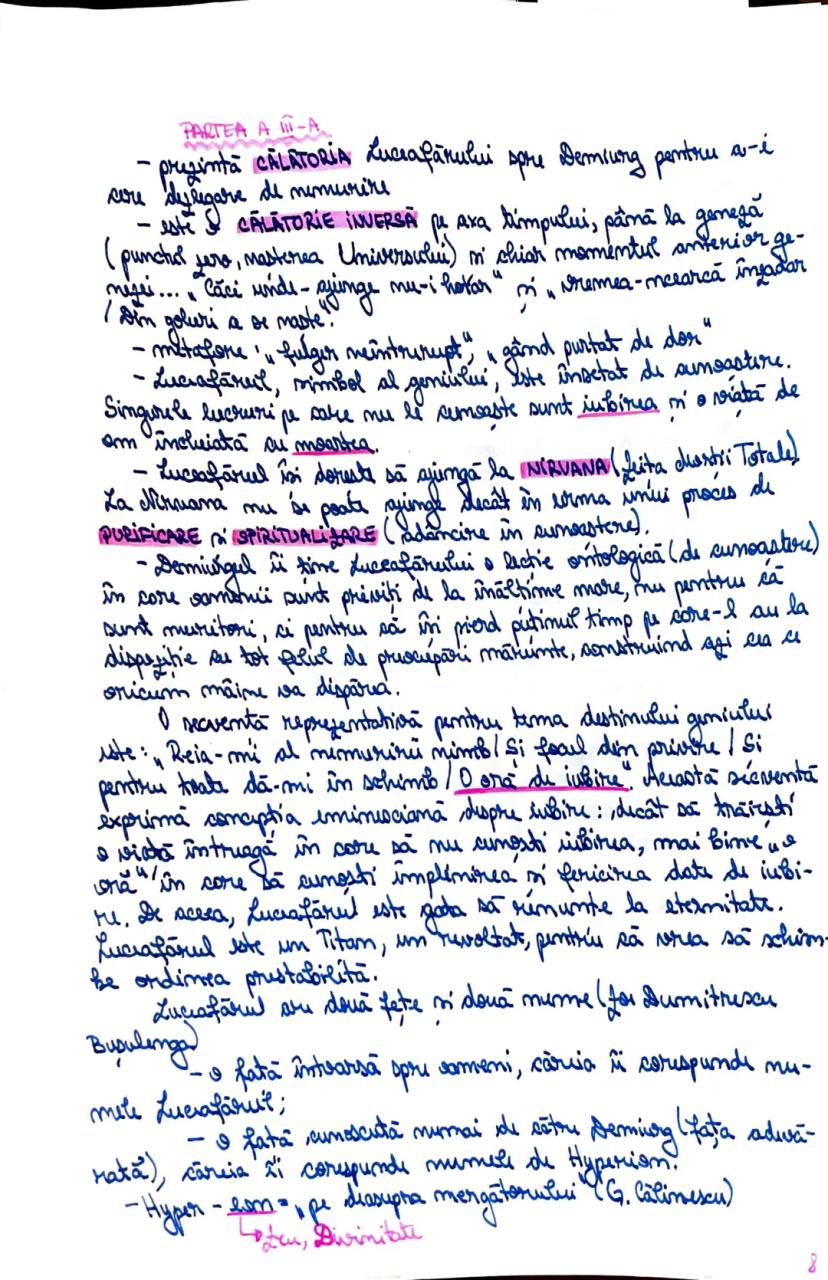 PARTEA A III-A
- prezintă CĂLĂTORIA Luceafărului spre Demiurg pentru a-i
cere dezlegare de nemurire
- este o CĂLĂTORIE INVERSĂ pe axa timpului, până la geneză
(punctul zero, nașterea Universului) și chiar momentul anterior ge-
nezei... „Căci unde-ajunge nu-i hotar" și „vremea-ncearcă înzadar
/ Din goluri a se naște".
- metafore: „fulger neîntrerupt", „gând purtat de dor"
- Luceafărul, simbol al geniului, este însetat de cunoaștere.
Singurele lucruri pe care nu le cunoaște sunt iubirea și o viață de
om încheiată cu moartea.
- Luceafărul își dorește să ajungă la NIRVANA (zeița Morții Totale)
La Nirvana nu se poate ajunge decât în urma unui proces de
PURIFICARE și SPIRITUALIZARE (adâncire în cunoaștere).
- Demiurgul îi ține Luceafărului o lecție ontologică (de cunoaștere)
în care oamenii sunt priviți de la înălțime mare, nu pentru că
sunt muritori, ci pentru că își pierd puținul timp pe care-l au la
dispoziție cu tot felul de preocupări mărunte, construind azi cea ce
oricum mâine va dispărea.
O secvență reprezentativă pentru tema destinului geniului
este: „Reia-mi al nemuririi nimb / Și focul din privire / Și
pentru toate dă-mi în schimb / O oră de iubire". Această secvență
exprimă concepția eminesciană despre iubire: decât să trăiești
o viață întreagă în care să nu cunoști iubirea, mai bine „o
oră" în care să cunoști împlinirea și fericirea date de iubi-
re. De aceea, Luceafărul este gata să renunțe la eternitate.
Luceafărul este un Titan, un revoltat, pentru că vrea să schim-
be ordinea prestabilită.
Luceafărul are două fețe și două nume (Zoe Dumitrescu
Bușulenga)
- o față întoarsă spre oameni, căreia îi corespunde nu-
mele Luceafărul;
- o față cunoscută numai de către Demiurg (fața adevă-
rată), căreia îi corespunde numele de Hyperion.
- Hyper - eon = „pe deasupra mergătorului" (G. Călinescu)
↳ zeu, Divinitate
8